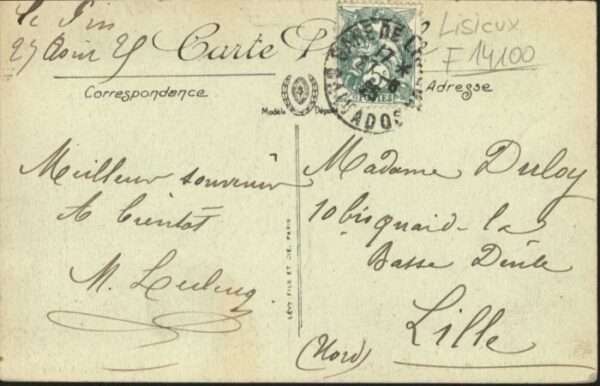 Le Pin
27 Août 25
Carte
Lisieux
F 14100
GARE DE
17
27
25
CALVADOS
Correspondance
Modèle Déposé
Adresse
Meilleur souvenir
A bientôt
M. Leclercq
LÉVY FILS ET CIE, PARIS
Madame Duloy
10 bis quai de la
Basse Deûle
Lille
(Nord)